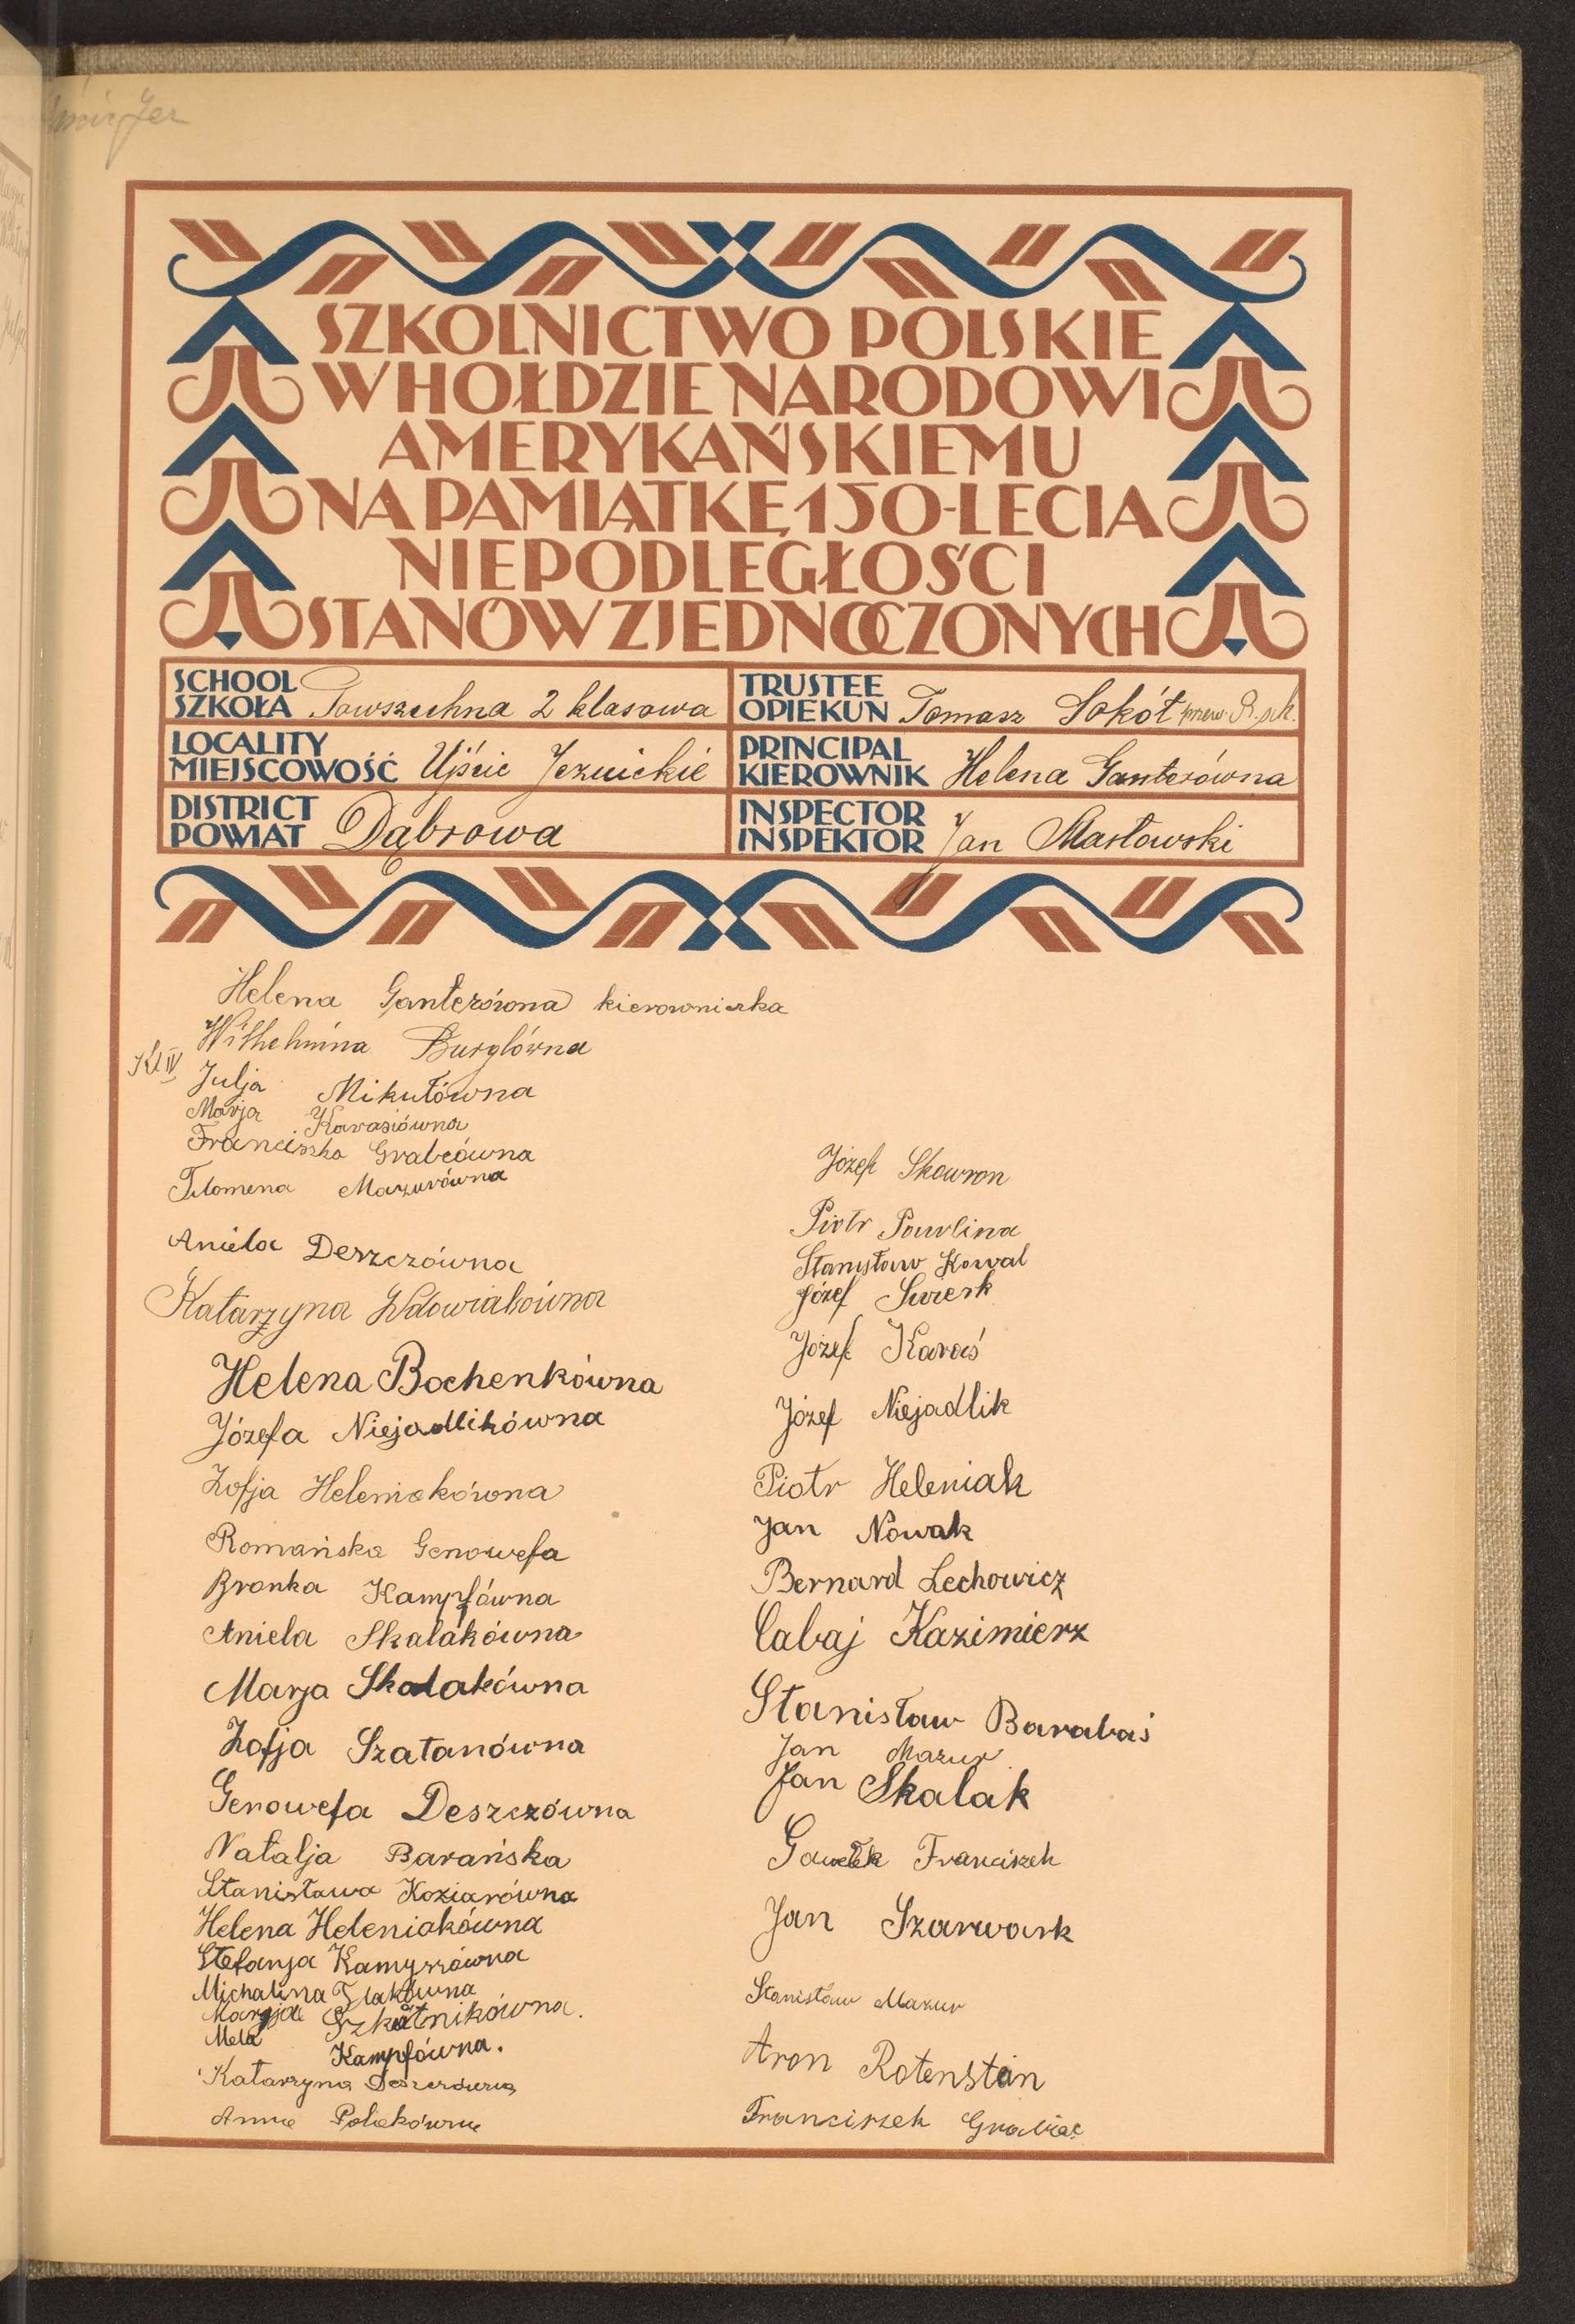 SZKOLNICTWO POLSKIE
W HOŁDZIE NARODOWI
AMERYKAŃSKIEMU
NA PAMIĄTKĘ 150-LECIA
NIEPODLEGŁOŚCI
STANÓW ZJEDNOCZONYCH
SCHOOL
SZKOŁA Powszechna 2 klasowa
TRUSTEE
OPIEKUN Tomasz Sokół przew. R. szk.
LOCALITY
MIEJSCOWOŚĆ Ujście Jezuickie
PRINCIPAL
KIEROWNIK Helena Ganterówna
DISTRICT
POWIAT Dąbrowa
INSPECTOR
INSPEKTOR Jan Masłowski
Helena Ganterówna kierowniczka
Wilhelmina Burglówna
Kl. IV
Julja Mikułówna
Marja Karasiówna
Franciszka Grabcówna
Filomena Mazurówna
Aniela Deszczówna
Katarzyna Wdowiakówna
Helena Bochenkówna
Józefa Niejadlikówna
Zofja Heleniakówna
Romańska Genowefa
Bronka Kampfówna
Aniela Skalakówna
Marja Skalakówna
Zofja Szatanówna
Genowefa Deszczówna
Natalja Barańska
Stanisława Koziarówna
Helena Heleniakówna
Stefanja Kamyszówna
Michalina Żlakówna
Maryja Szkotnikówna.
Mela Kampfówna.
Katarzyna Deszczówna
Anna Polakówna
Józef Skowron
Piotr Pawlina
Stanisław Kowal
Józef Świerk
Józef Karaś
Józef Niejadlik
Piotr Heleniak
Jan Nowak
Bernard Lechowicz
Cabaj Kazimierz
Stanisław Barabaś
Jan Mazur
Jan Skalak
Gawełek Franciszek
Jan Szarwark
Stanisław Mazur
Aron Rotenstein
Franciszek